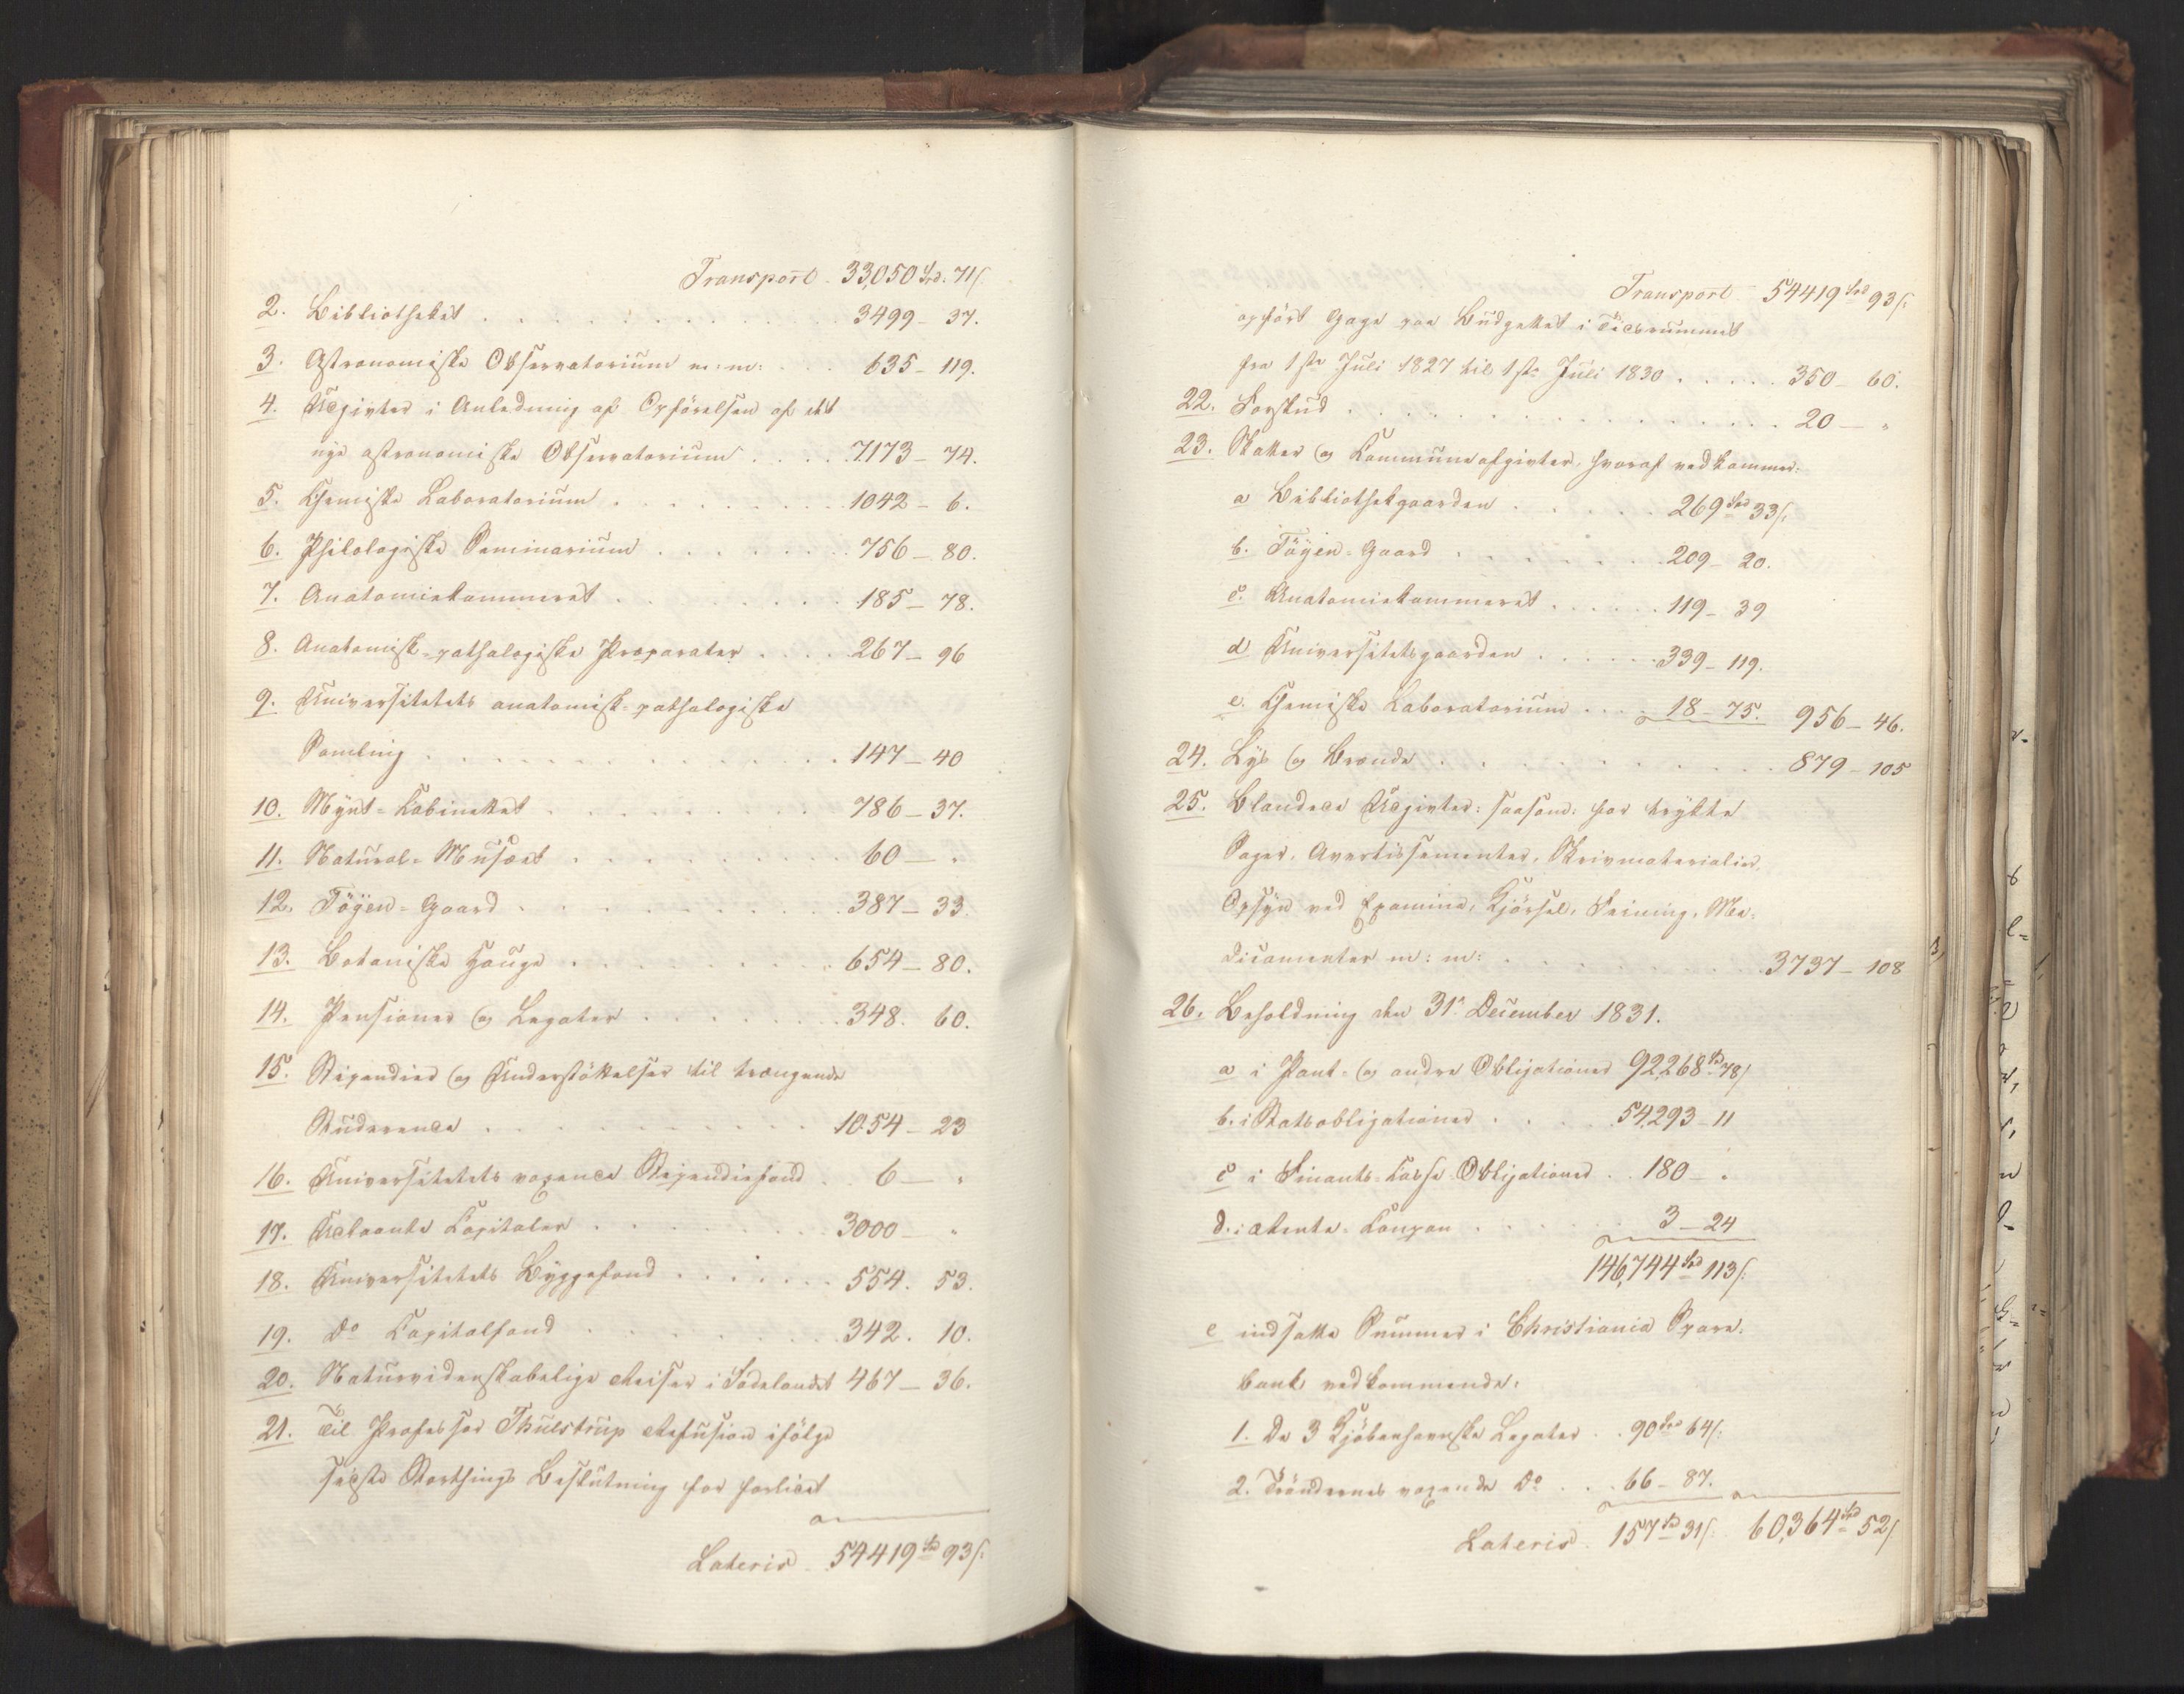 Transport 33,050 Spd: 71 s.
2. Bibliotheket . . . 3499 – 37.
3. Astronomiske Observatorium m: m: . . . 635 – 119.
4. Udgivter i Anledning af Opförelsen af det
nye astronomiske Observatorium . . . 7173 – 74.
5. Chemiske Laboratorium . . . 1042 – 6.
6. Philologiske Seminarium . . . 756 – 80.
7. Anatomiekammeret . . . 185 – 78.
8. Anatomisk-pathologiske Præparater . . . 267 – 96
9. Universitetets anatomisk-pathologiske
Samling . . . 147 – 40
10. Mynt-Cabinettet . . . 786 – 37.
11. Natural-Musæet . . . 60 – "
12. Töyen-Gaard . . . 387 – 33.
13. Botaniske Hauge . . . 654 – 80.
14. Pensioner og Legater . . . 348. 60.
15. Stipendier og Understöttelser til trængende
Studerende . . . 1054 – 23
16. Universitetets voxende Stipendiefond . . 6 – "
17. Udlaante Capitaler . . . 3000 – "
18. Universitetets Byggefond . . . 554. 53.
19. Do Capitalfond . . . 342. 10.
20. Naturvidenskabelige Reiser i Födelandet 467 – 36.
21. Til Professor Thulstrup Refusion ifölge
sidste Storthings Beslutning for forlidet
Lateris 54419 Spd 93 s:
Transport 54419 Spd 93 s:
opfört Gage paa Budgettet i Tidsrummet
fra 1ste Juli 1827 til 1ste Juli 1830 . . . 350 – 60.
22. Forskud . . . 20 – "
23. Skatter og Communeafgivter, hvoraf vedkommer:
a Bibliothekgaarden . . . 269 Spd 33 s.
b. Töyen-Gaard . . . 209 – 20.
c. Anatomiekammeret . . . 119 – 39
d Universitetsgaarden . . . 339 – 119.
e. Chemiske Laboratorium . . . 18 – 75. 956 – 46.
24. Lys og Brænde . . . 879 – 105
25. Blandede Udgivter: saasom: for trykte
Sager, Avertissementer, Skrivmaterialier,
Opsyn ved Examina, Kjörsel, Feining, Me-
dicamenter m: m: . . . 3737 – 108
26. Beholdning den 31. December 1831.
a i Pant- og andre Obligationer 92,268 Spd 78 s
b. i Statsobligationer . . . 54,293 – 11
c i Finants-Casse Obligationer . . 180 – "
d. i Rente-Coupon . . . 3 – 24
146,744 Spd 113 s:
e indsatte Summer i Christiania Spare-
bank vedkommende:
1. De 3 Kjöbenhavnske Legater . . 90 Spd 64 s:
2. Tröndernes voxende Do . . . 66 – 87.
Lateris 157 Spd 31 s. 60,364 Spd 52 s